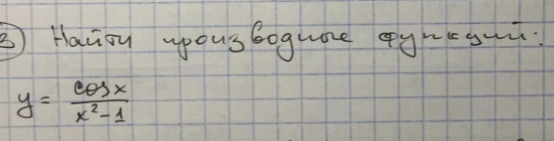 3) Найти производные функций:
y = cosx / x² - 1